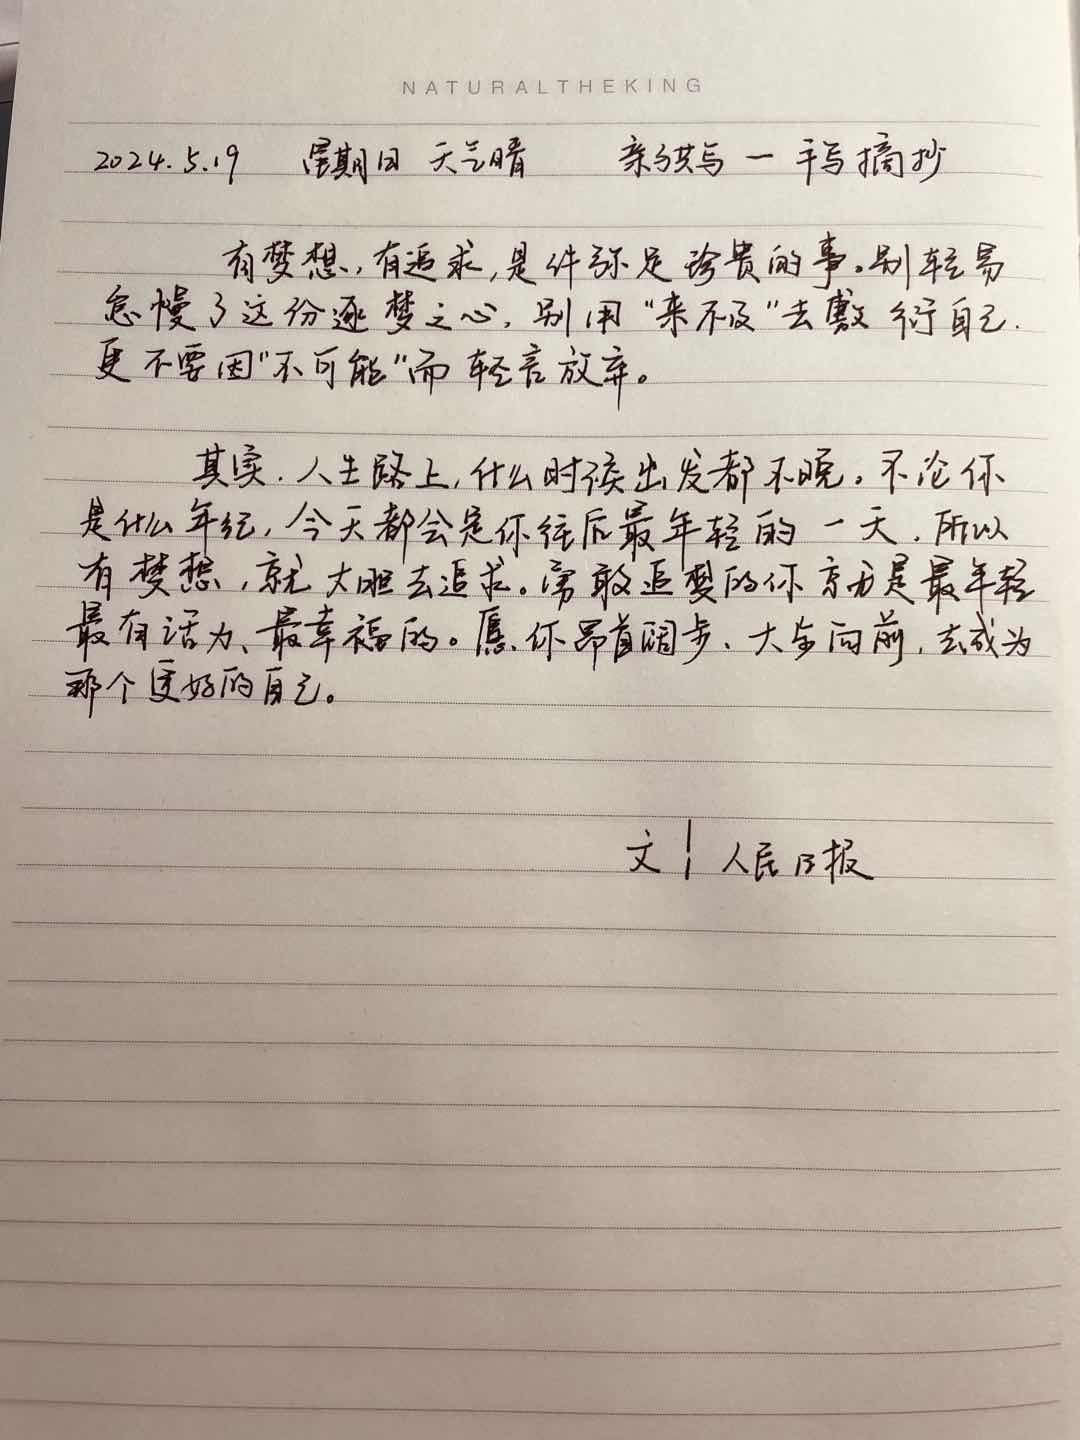 NATURALTHEKING
2024.5.19 星期日 天气晴 一手写摘抄
有梦想,有追求,是件弥足珍贵的事。别轻易
怠慢了这份逐梦之心,别用“来不及”去敷衍自己.
更不要因“不可能”而轻言放弃。
其实.人生路上,什么时候出发都不晚。不论你
是什么年纪,今天都会是你往后最年轻的一天,所以
有梦想,就大胆去追求。勇敢追梦的你就是最年轻
最有活力、最幸福的。愿你昂首阔步、大步向前,去成为
那个更好的自己。
文|人民日报